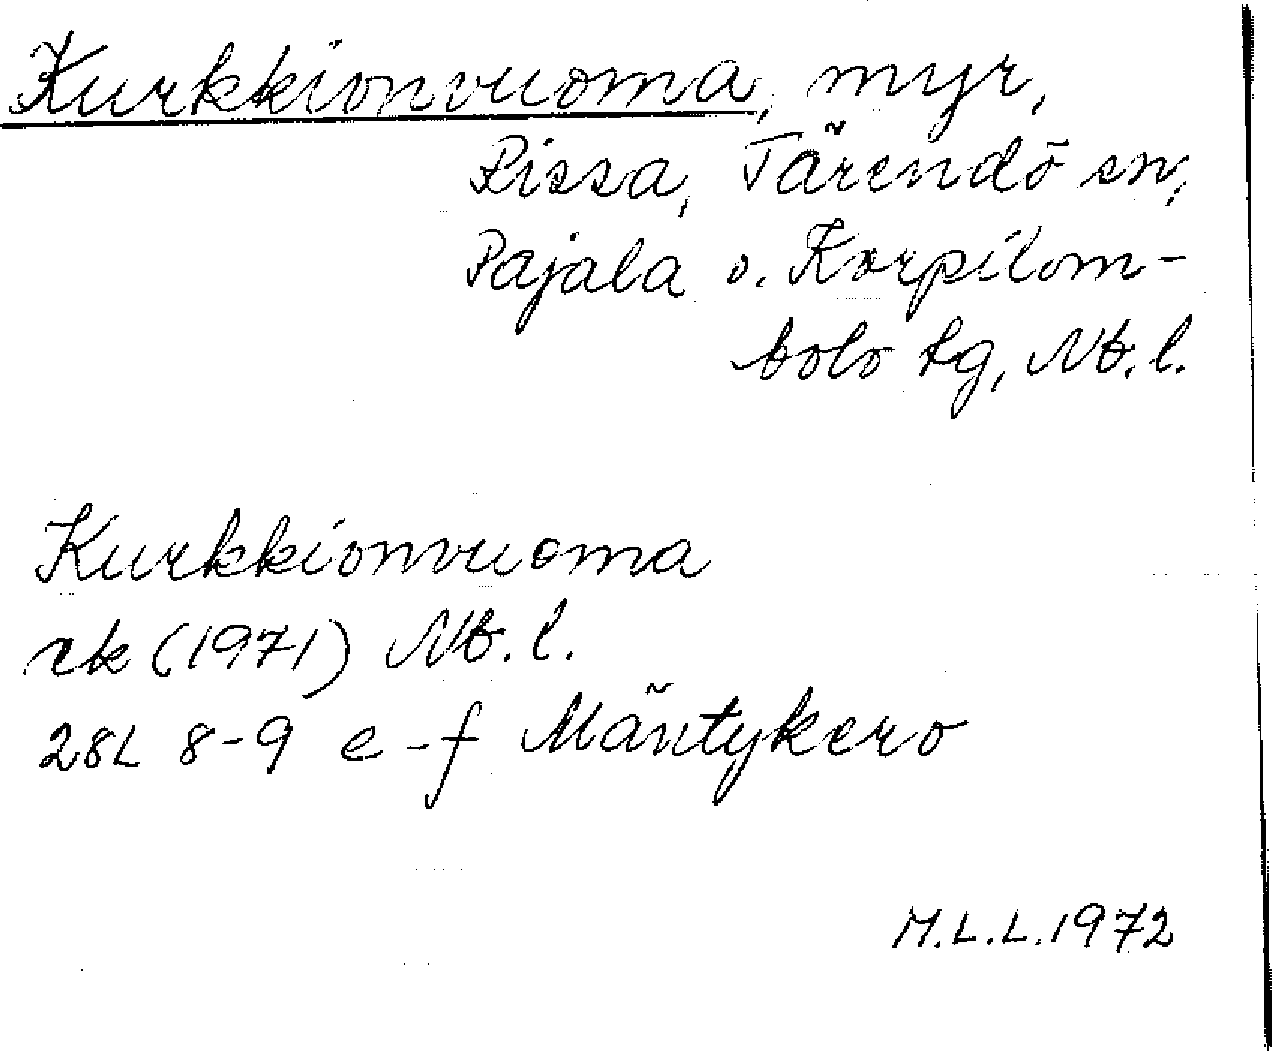 Kurkkionvuoma, myr,
Rissa, Tärendö sn,
Pajala o. Korpilom-
bolo tg, Nb. l.
Kurkkionvuoma
rk (1971) Nb. l.
28L 8-9 e-f Mäntykero
M.L.L. 1972